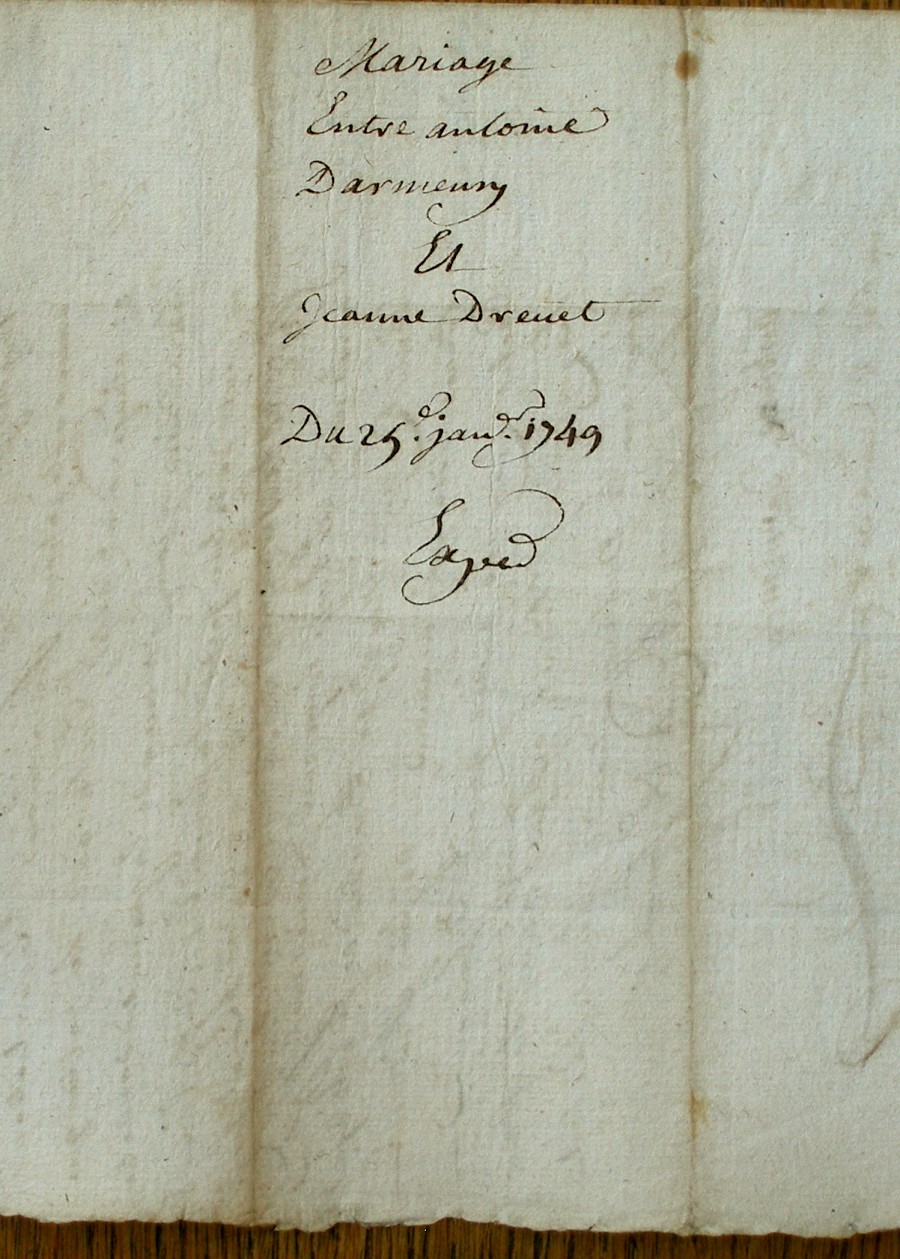 Mariage
Entre antoine
Darmeun
Et
Jeanne Dreuet
Du 25.e janr. 1749
Exped